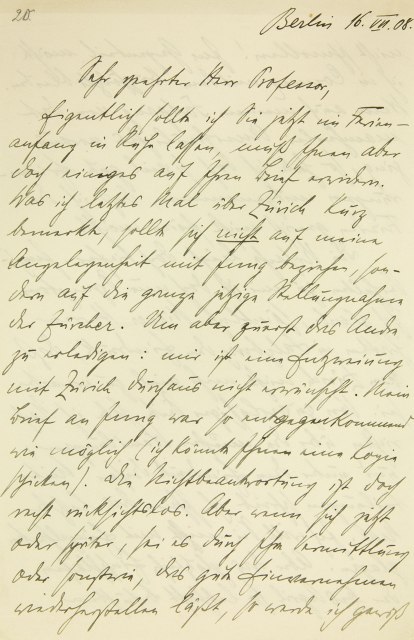 20.
Berlin 16. VII. 08.
Sehr geehrter Herr Professor,
Eigentlich sollte ich Sie jetzt im Ferien-
anfang in Ruhe lassen, muß Ihnen aber
doch einiges auf Ihren Brief erwidern.
Was ich letztes Mal über Zürich kurz
bemerkt, sollte sich nicht auf meine
Angelegenheit mit Jung beziehen, son-
dern auf die ganze jetzige Stellungnahme
der Zürcher. Um aber zuerst das Andre
zu erledigen: mir ist eine Entzweiung
mit Zürich durchaus nicht erwünscht. Mein
Brief an Jung war so entgegenkommend
wie möglich (ich könnte Ihnen eine Kopie
schicken). Die Nichtbeantwortung ist doch
recht rücksichtslos. Aber wenn sich jetzt
oder später, sei es durch Ihre Vermittlung
oder sonstwie, das gute Einvernehmen
wiederherstellen läßt, so werde ich gewiß